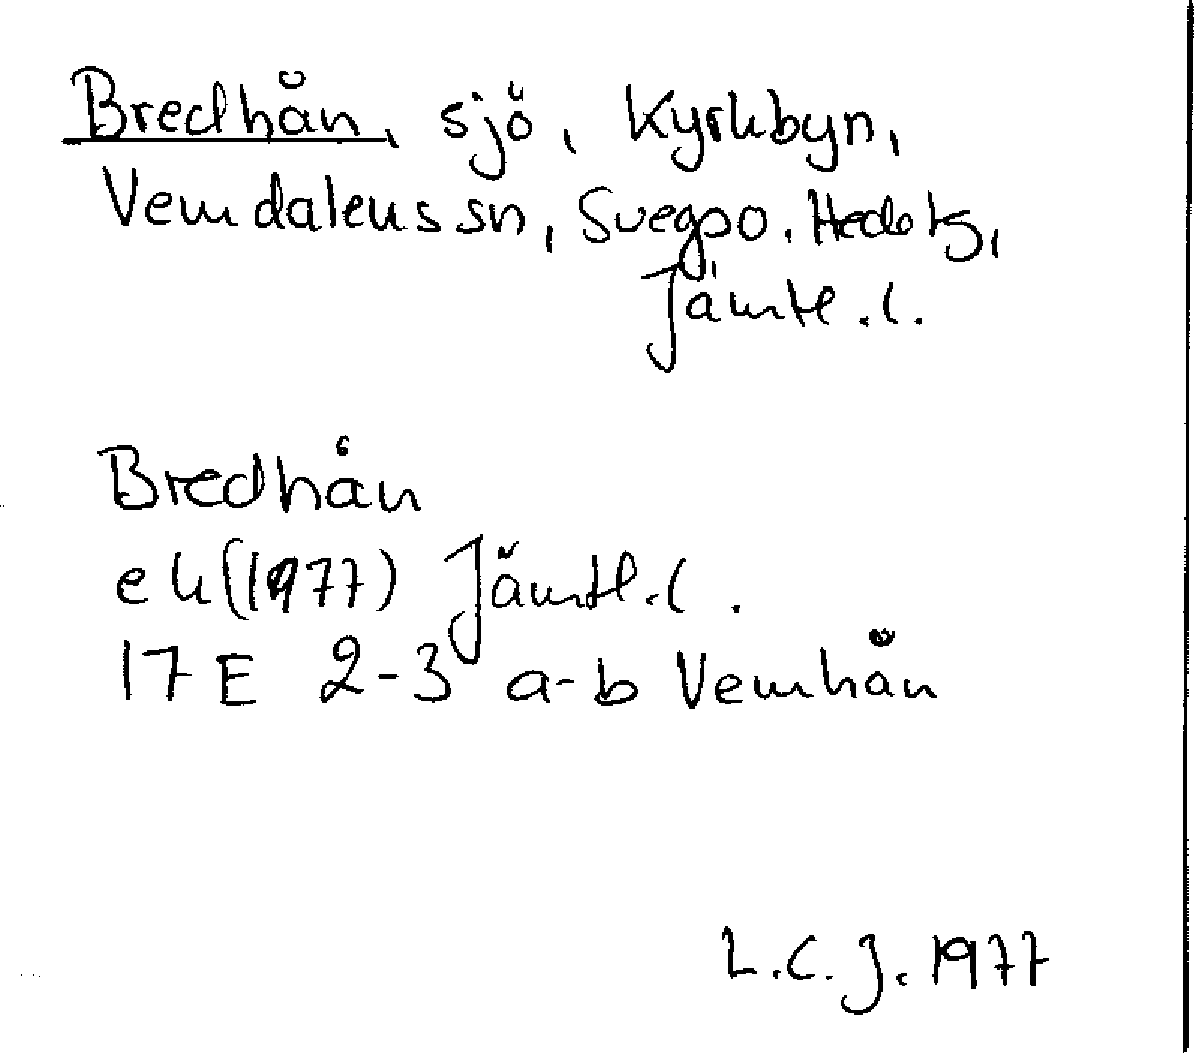 Bredhån, sjö, Kyrkbyn,
Vemdalens sn, Svegs o. Hede tg,
Jämtl. l.
Bredhån
ek (1977) Jämtl. l.
17E 2-3 a-b Vemhån
L.C.J. 1977